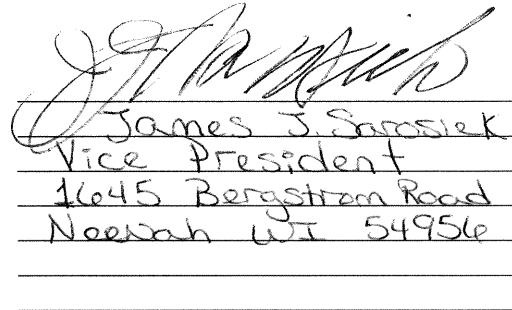 James J. Sarosiek
Vice President
1645 Bergstrom Road
Neenah WI 54956